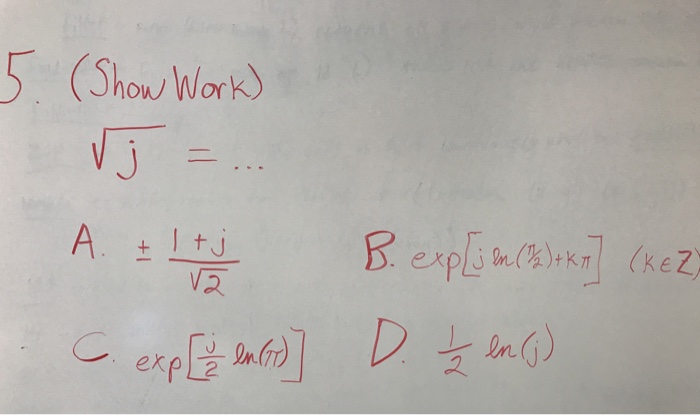 5. (Show Work)
√j = ...
A. ± (1+j)/√2
B. exp[j ln(π/2)+kπ] (k∈Z)
C. exp[j/2 ln(π)]
D. 1/2 ln(j)